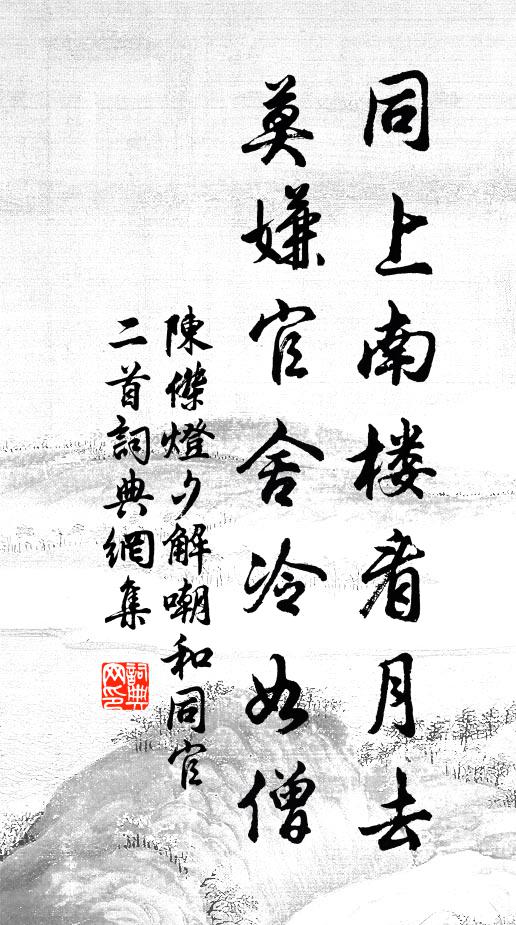 同上南楼看月去
莫嫌官舍冷如僧
陳傑燈夕解嘲和同官
二首詞典網集
詞典
网印